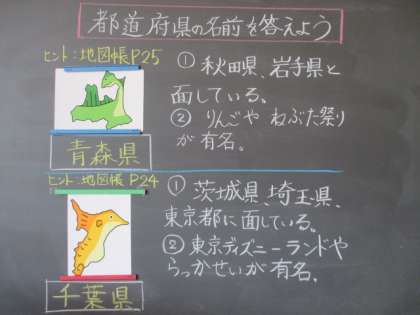 都道府県の名前を答えよう
ヒント:地図帳P25
① 秋田県、岩手県と
面している。
② りんごや ねぶた祭り
が 有名。
青森県
ヒント:地図帳P24
① 茨城県、埼玉県、
東京都に面している。
② 東京ディズニーランドや
らっかせいが有名。
千葉県